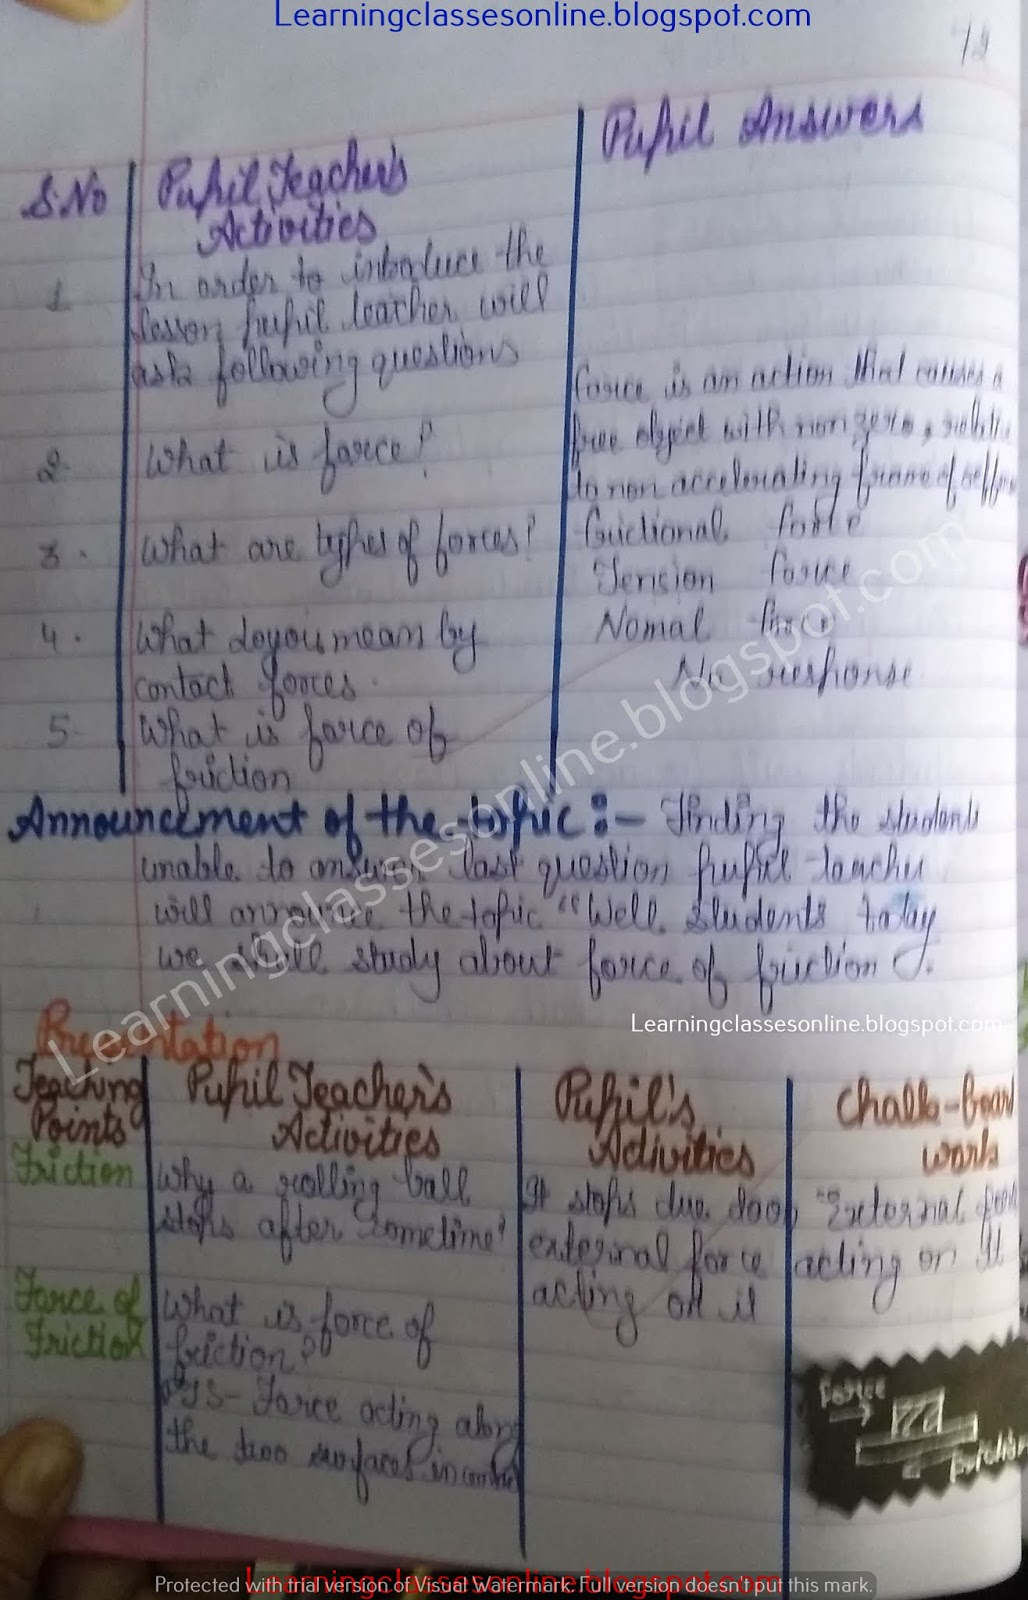 Learningclassesonline.blogspot.com
72
S.No
Pupil Teacher's
Activities
Pupil Answers
1
In order to introduce the
lesson pupil teacher will
ask following questions
2.
What is force?
force is an action that causes a
free object with non zero, relative
to non accelerating frame of
3.
What are types of forces?
frictional force
Tension force
4.
What do you mean by
contact forces.
Nomal force
No response
5.
What is force of
friction
Announcement of the topic:- Finding the students
unable to answer last question pupil teacher
will announce the topic "Well students today
we shall study about force of friction".
Learningclassesonline.blogspot.com
Learningclassesonline.blogspot.com
Presentation
Teaching
Points
Pupil Teacher's
Activities
Pupil's
Activities
Chalk-board
work
Friction
Why a rolling ball
stops after sometime?
It stops due to
external force
acting on it
"External force
acting on It
Force of
Friction
What is force of
friction?
PTS- Force acting along
the two surfaces in contact
force
friction
Learningclassesonline.blogspot.com
Protected with trial version of Visual Watermark. Full version doesn't put this mark.